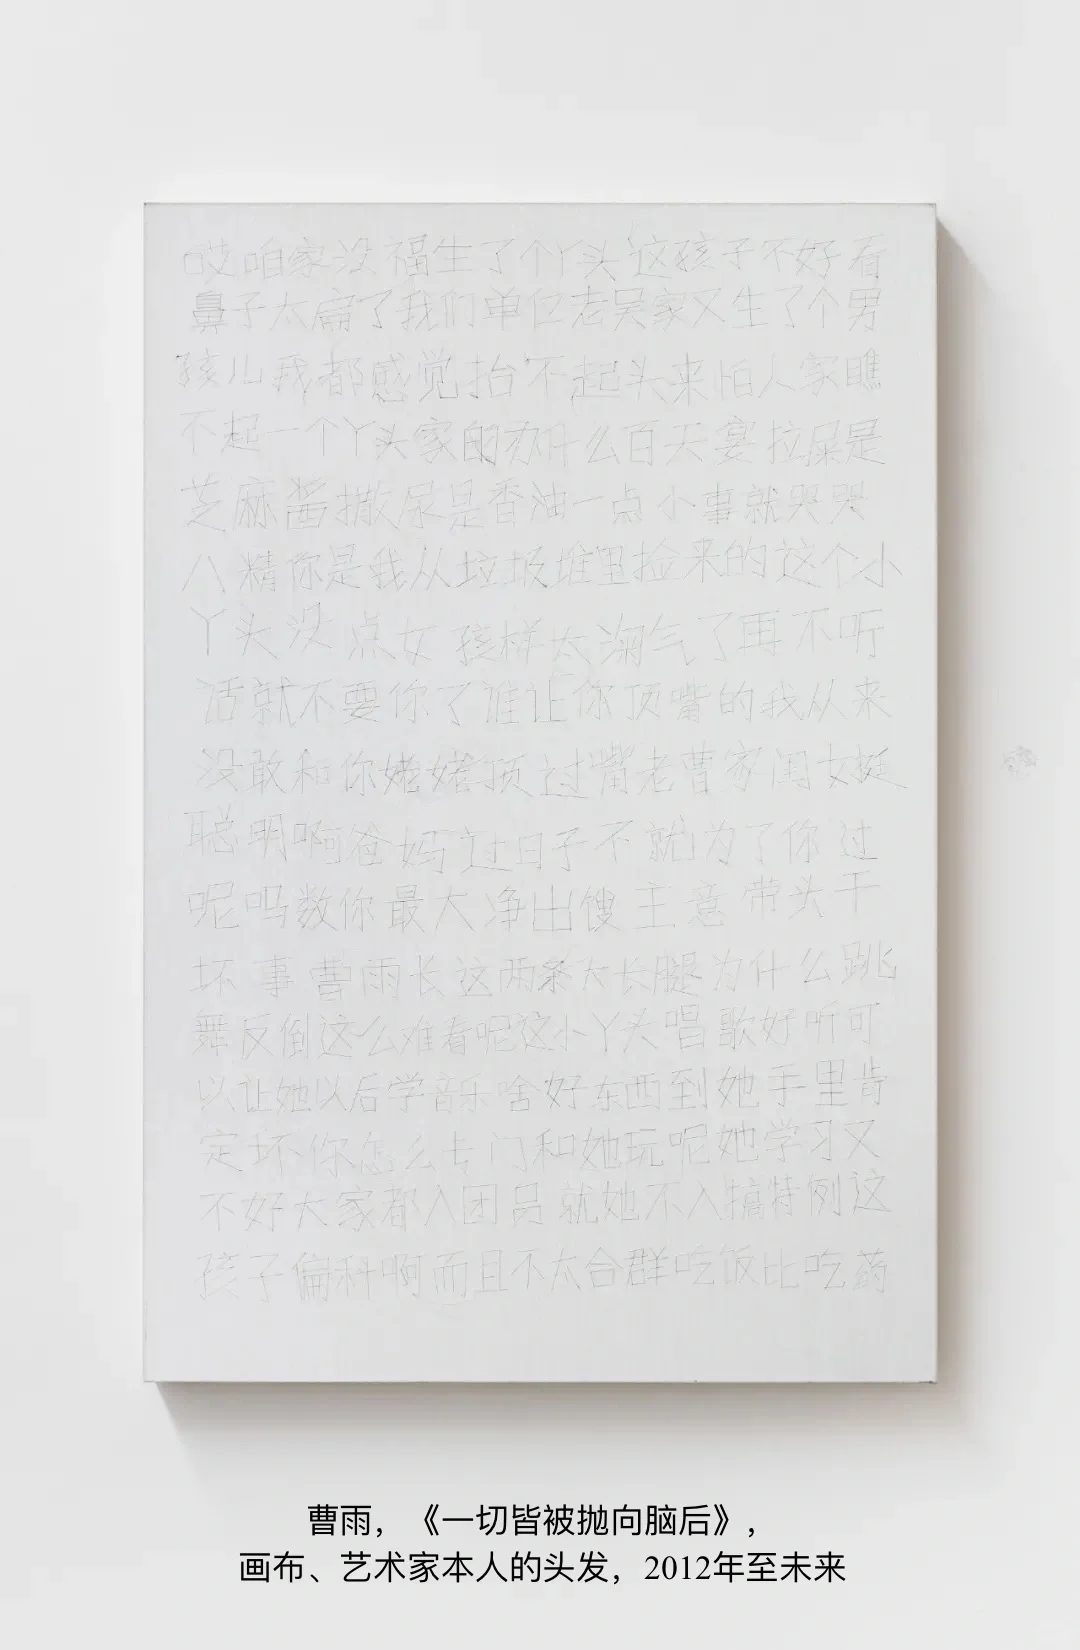 哎咱家没福生了个丫头这孩子不好看
鼻子太扁了我们单位老吴家又生了个男
孩儿我都感觉抬不起头来怕人家瞧
不起一个丫头家的办什么百天宴拉屎是
芝麻酱撒尿是香油一点小事就哭哭
八精你是我从垃圾堆里捡来的这个小
丫头没点女孩样太淘气了再不听
话就不要你了谁让你顶嘴的我从来
没敢和你姥姥顶过嘴老曹家闺女挺
聪明啊爸妈过日子不就为了你过
呢吗数你最大净出馊主意带头干
坏事曹雨长这两条大长腿为什么跳
舞反倒这么难看呢这小丫头唱歌好听可
以让她以后学音乐啥好东西到她手里肯
定坏你怎么专门和她玩呢她学习又
不好大家都入团员就她不入搞特例这
孩子偏科啊而且不太合群吃饭比吃药
曹雨，《一切皆被抛向脑后》，
画布、艺术家本人的头发，2012年至未来